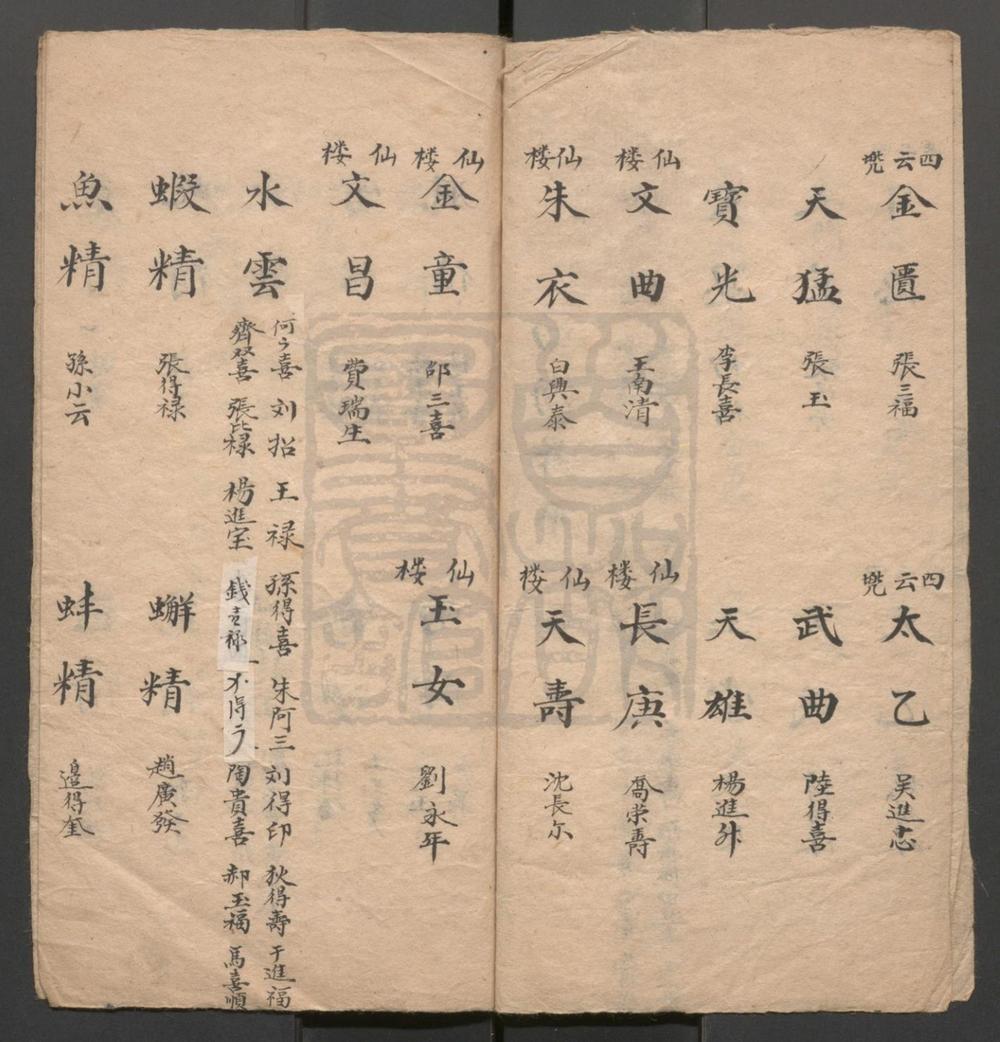 四云兠
金匱 張三福
四云兠
太乙 吴進忠
天猛 張玉
武曲 陸得喜
寶光 李長喜
天雄 楊進升
仙楼
文曲 王南清
仙楼
長庚 喬荣壽
仙楼
朱衣 白興泰
仙楼
天壽 沈長尔
仙楼
金童 邵三喜
仙楼
玉女 劉永年
仙楼
文昌 費瑞生
水雲
何喜 刘招 王禄 孫得喜 朱阿三 刘得印 狄得壽 于進福
齊双喜 張禄 楊進宝 錢禄 陶貴喜 郝玉福 馬喜順
蝦精 張得禄
蠏精 趙廣發
魚精 孫小云
蚌精 邉得奎